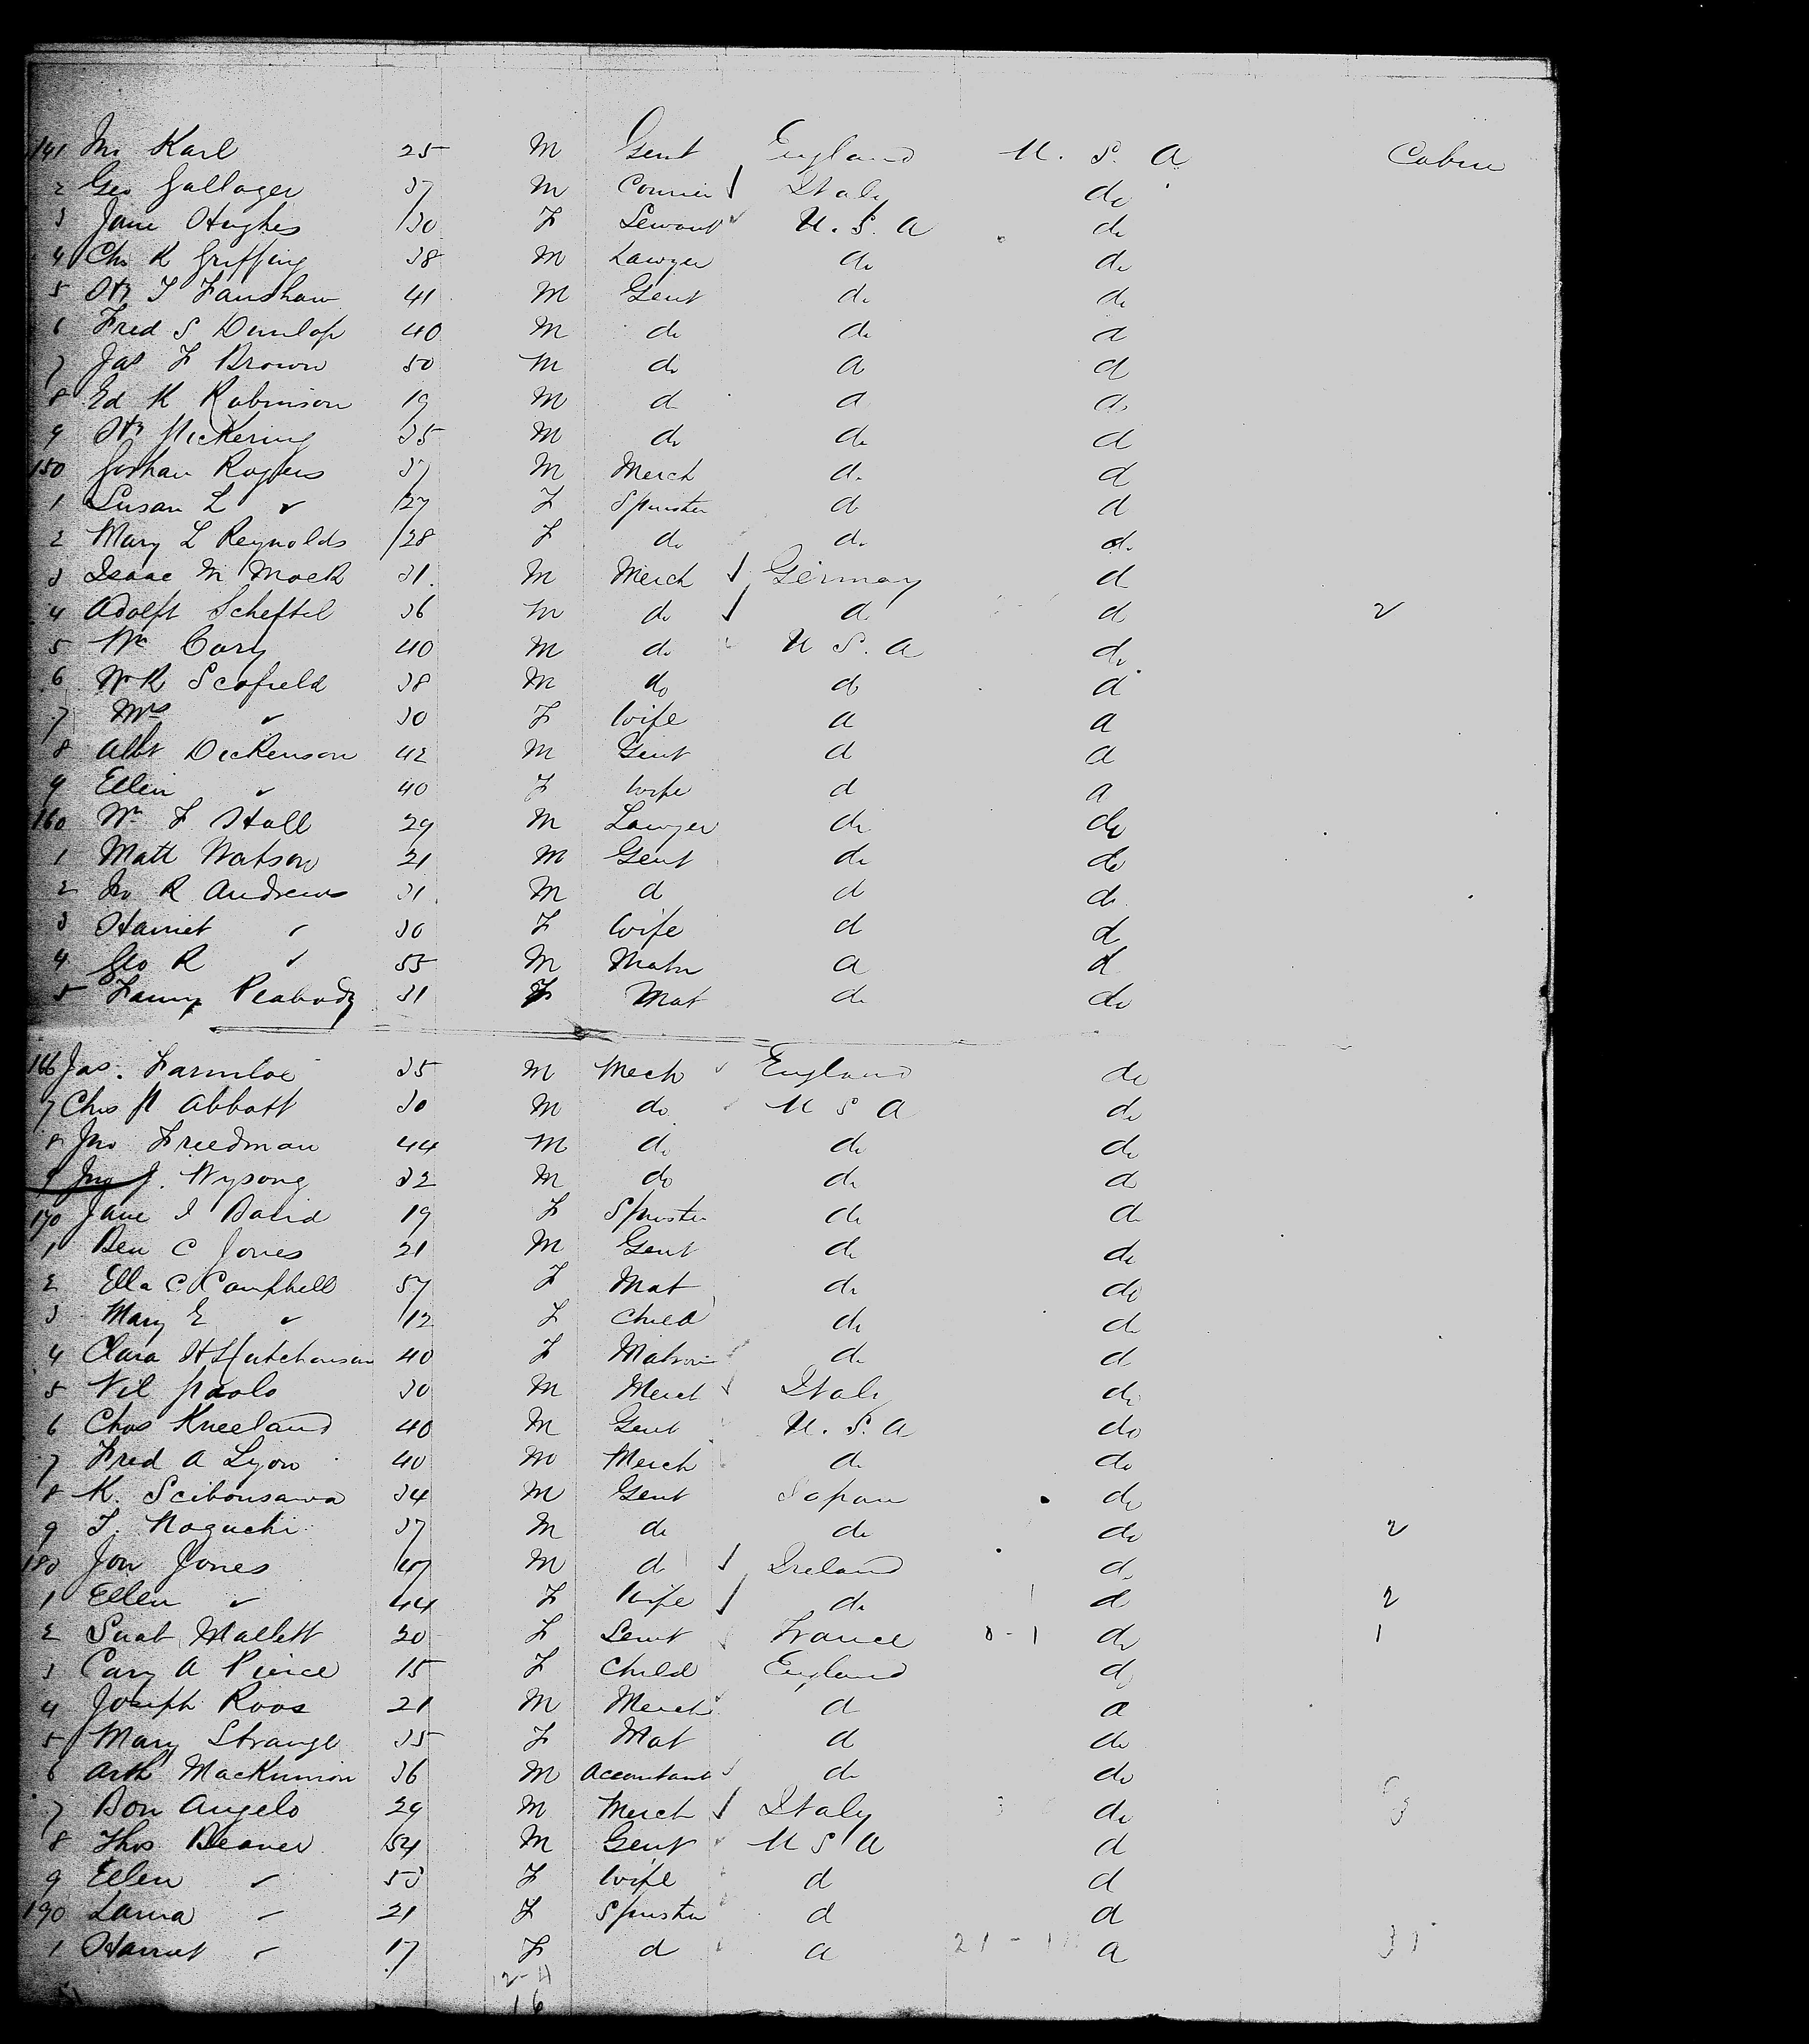 141 Jno Karl 25 M Gent England U. S. A Cabin
2 Geo Gallager 37 M Courier Italy do
3 Jane Hughes 30 F Servant U. S. A do
4 Chs R Griffing 38 M Lawyer do do
5 Hy T Fanshaw 41 M Gent do do
6 Fred S Dunlop 40 M do do d
7 Jas F Brown 50 M do d d
8 Ed K Robinson 19 M d d do
9 Hy Pickering 35 M do do d
150 Gorhan Rogers 37 M Merch do d
1 Susan L " 27 F Spinster do d
2 Mary L Reynolds 28 F do do do
3 Isaac M Mack 31 M Merch Germany d
4 Adolph Scheftel 36 M do d d 2
5 Wm Cary 40 M do U S. A do
6 W R Scofield 38 M do do d
7 Mrs " 30 F Wife d d
8 Albt Dickenson 42 M Gent d d
9 Ellen " 40 F Wife d d
160 Wm F Hall 29 M Lawyer do do
1 Matt Watson 21 M Gent do do
2 Jno R Andrews 31 M d d do
3 Harriet " 30 F Wife d d
4 Geo R " 55 M d d
5 Fanny Peabody 31 F Mat do do
166 Jas. Farmloe 35 M Mech England do
7 Chs P Abbott 30 M do U S A do
8 Jno Freedman 44 M do do do
9 Jno J. Wysong 32 M do do d
170 Jane I David 19 F Spinster do d
1 Ben C Jones 21 M Gent do do
2 Ella C Campbell 57 F Mat do do
3 Mary E " 12 F Child do do
4 Clara H Hutchinson 40 F Matron do d
5 Vil Paolo 30 M Merch Italy do
6 Chas Kneeland 40 M Gent U. S. A do
7 Fred A Lyon 40 M Merch do do
8 K. Scibousawa 34 M Gent Japan do
9 T. Noguchi 37 M do do do 2
180 Jon Jones 47 M d Ireland d
1 Ellen " 44 F Wife do d 2
2 Mallett 20 F Servt France 0-1 do 1
3 Cary A Pierce 15 F Child England d
4 Joseph Roos 21 M Merch d d
5 Mary Strange 35 F Mat d do
6 Arth MacKinnon 36 M Accountant do do
7 Don Angelo 29 M Merch Italy do 3
8 Thos Beaver 54 M Gent U S A d
9 Ellen " 53 F Wife d d
190 Laura " 21 F Spinster d d
1 Harriet " 17 F d d 21 - d 31
12-4
16